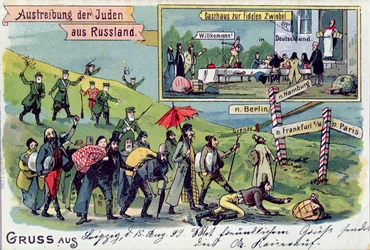 Austreibung der Juden
aus Russland.
Gasthaus zur fidelen Zwiebel
Willkommen!
in
Deutschland.
n. Hamburg
n. Berlin
n. Frankfurt a/M
n. Paris
Grenze
GRUSS AUS
Leipzig, d. 15. Aug. 99. Mit freundlichem Gruss